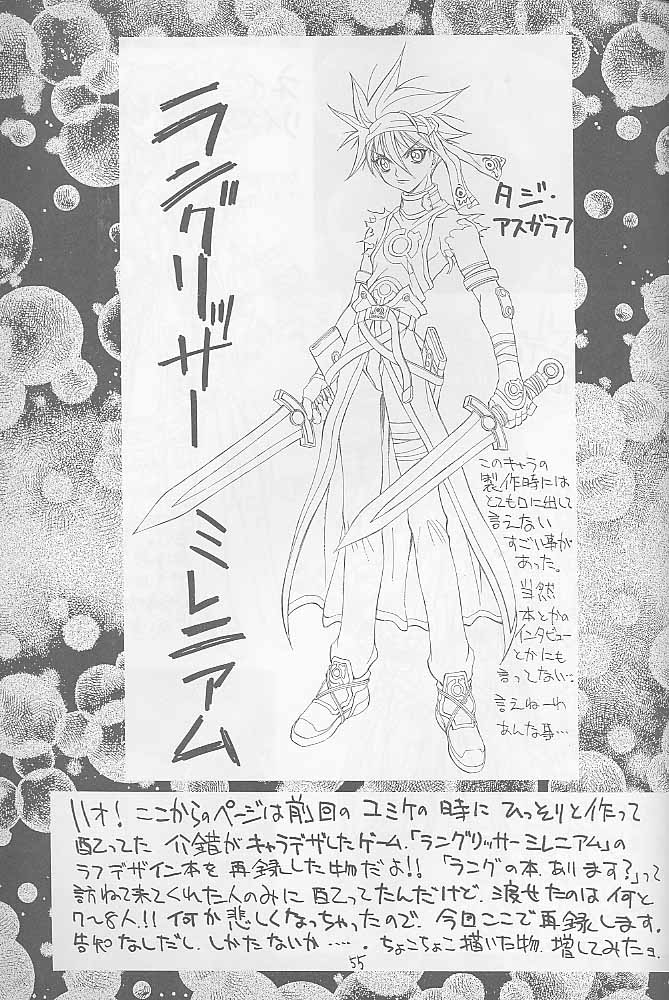 ラングリッサー ミレニアム
タジ・
アスガラフ
このキャラの
製作時には
とても口に出して
言えない
すごい事が
あった。
当然
本とかの
インタビュー
とかにも
言ってない…
言えねーわ
あんな事…
ハオ! ここからのページは前回のコミケの時に ひっそりと作って
配ってた 介錯がキャラデザしたゲーム「ラングリッサー ミレニアム」の
ラフデザイン本を 再録した物だよ!! 「ラングの本、あります?」って
訪ねて来てくれた人のみに 配ってたんだけど、渡せたのは 何と
7〜8人!! 何か悲しくなっちゃったので、今回ここで再録します。
告知なしだし、しかたないか ・・・・・。ちょこちょこ描いた物、増してみたョ
55